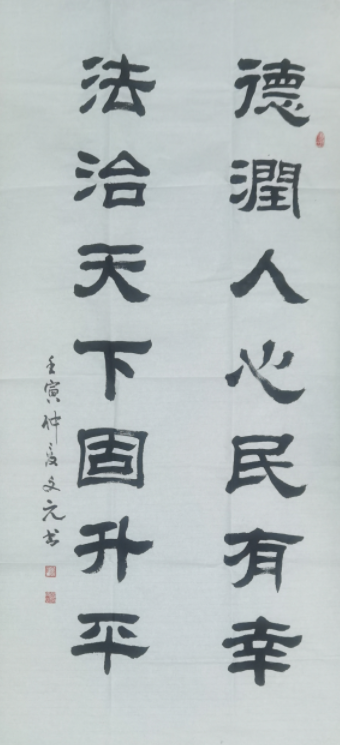 德潤人心民有幸
法治天下固升平
壬寅仲夏文元书